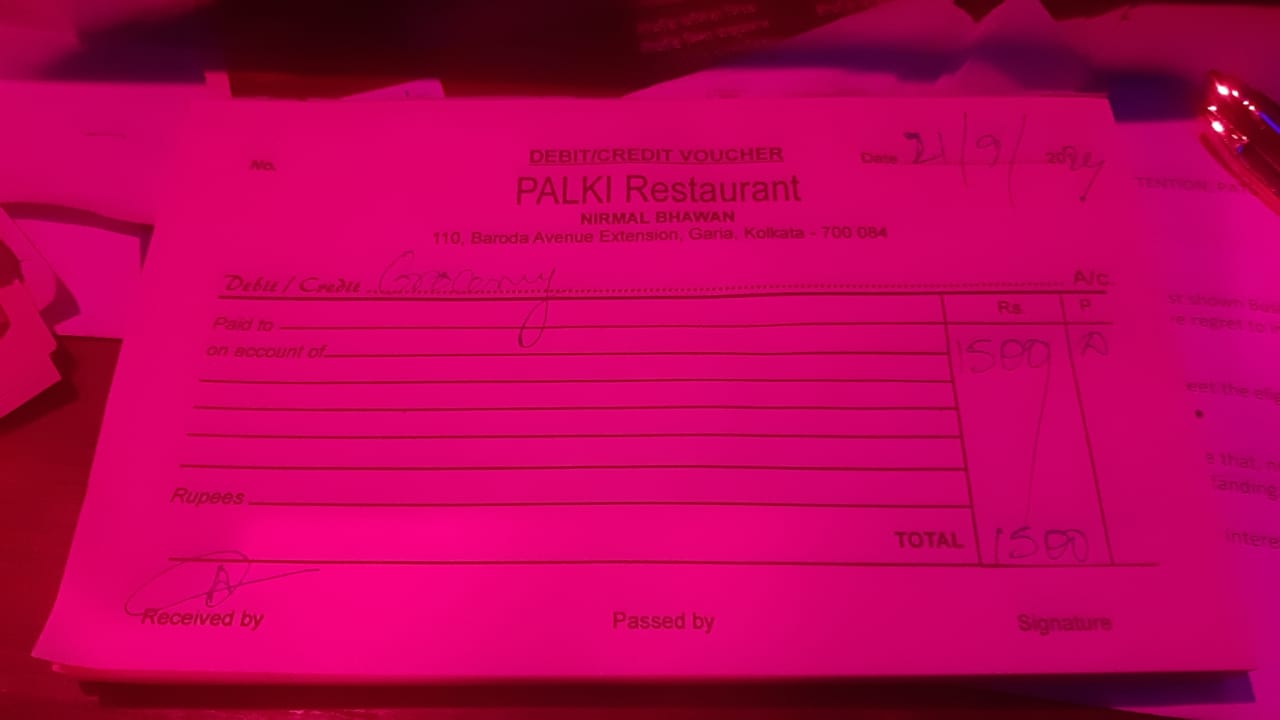 No.
DEBIT/CREDIT VOUCHER
Date 21/9/2024
PALKI Restaurant
NIRMAL BHAWAN
110, Baroda Avenue Extension, Garia, Kolkata - 700 084
Debit / Credit Grocery A/c.
Rs. P.
Paid to
on account of 1500
Rupees
TOTAL 1500
Received by Passed by Signature
TENTION
st shown Bus
e regret to
eet the
e that,
anding
intere